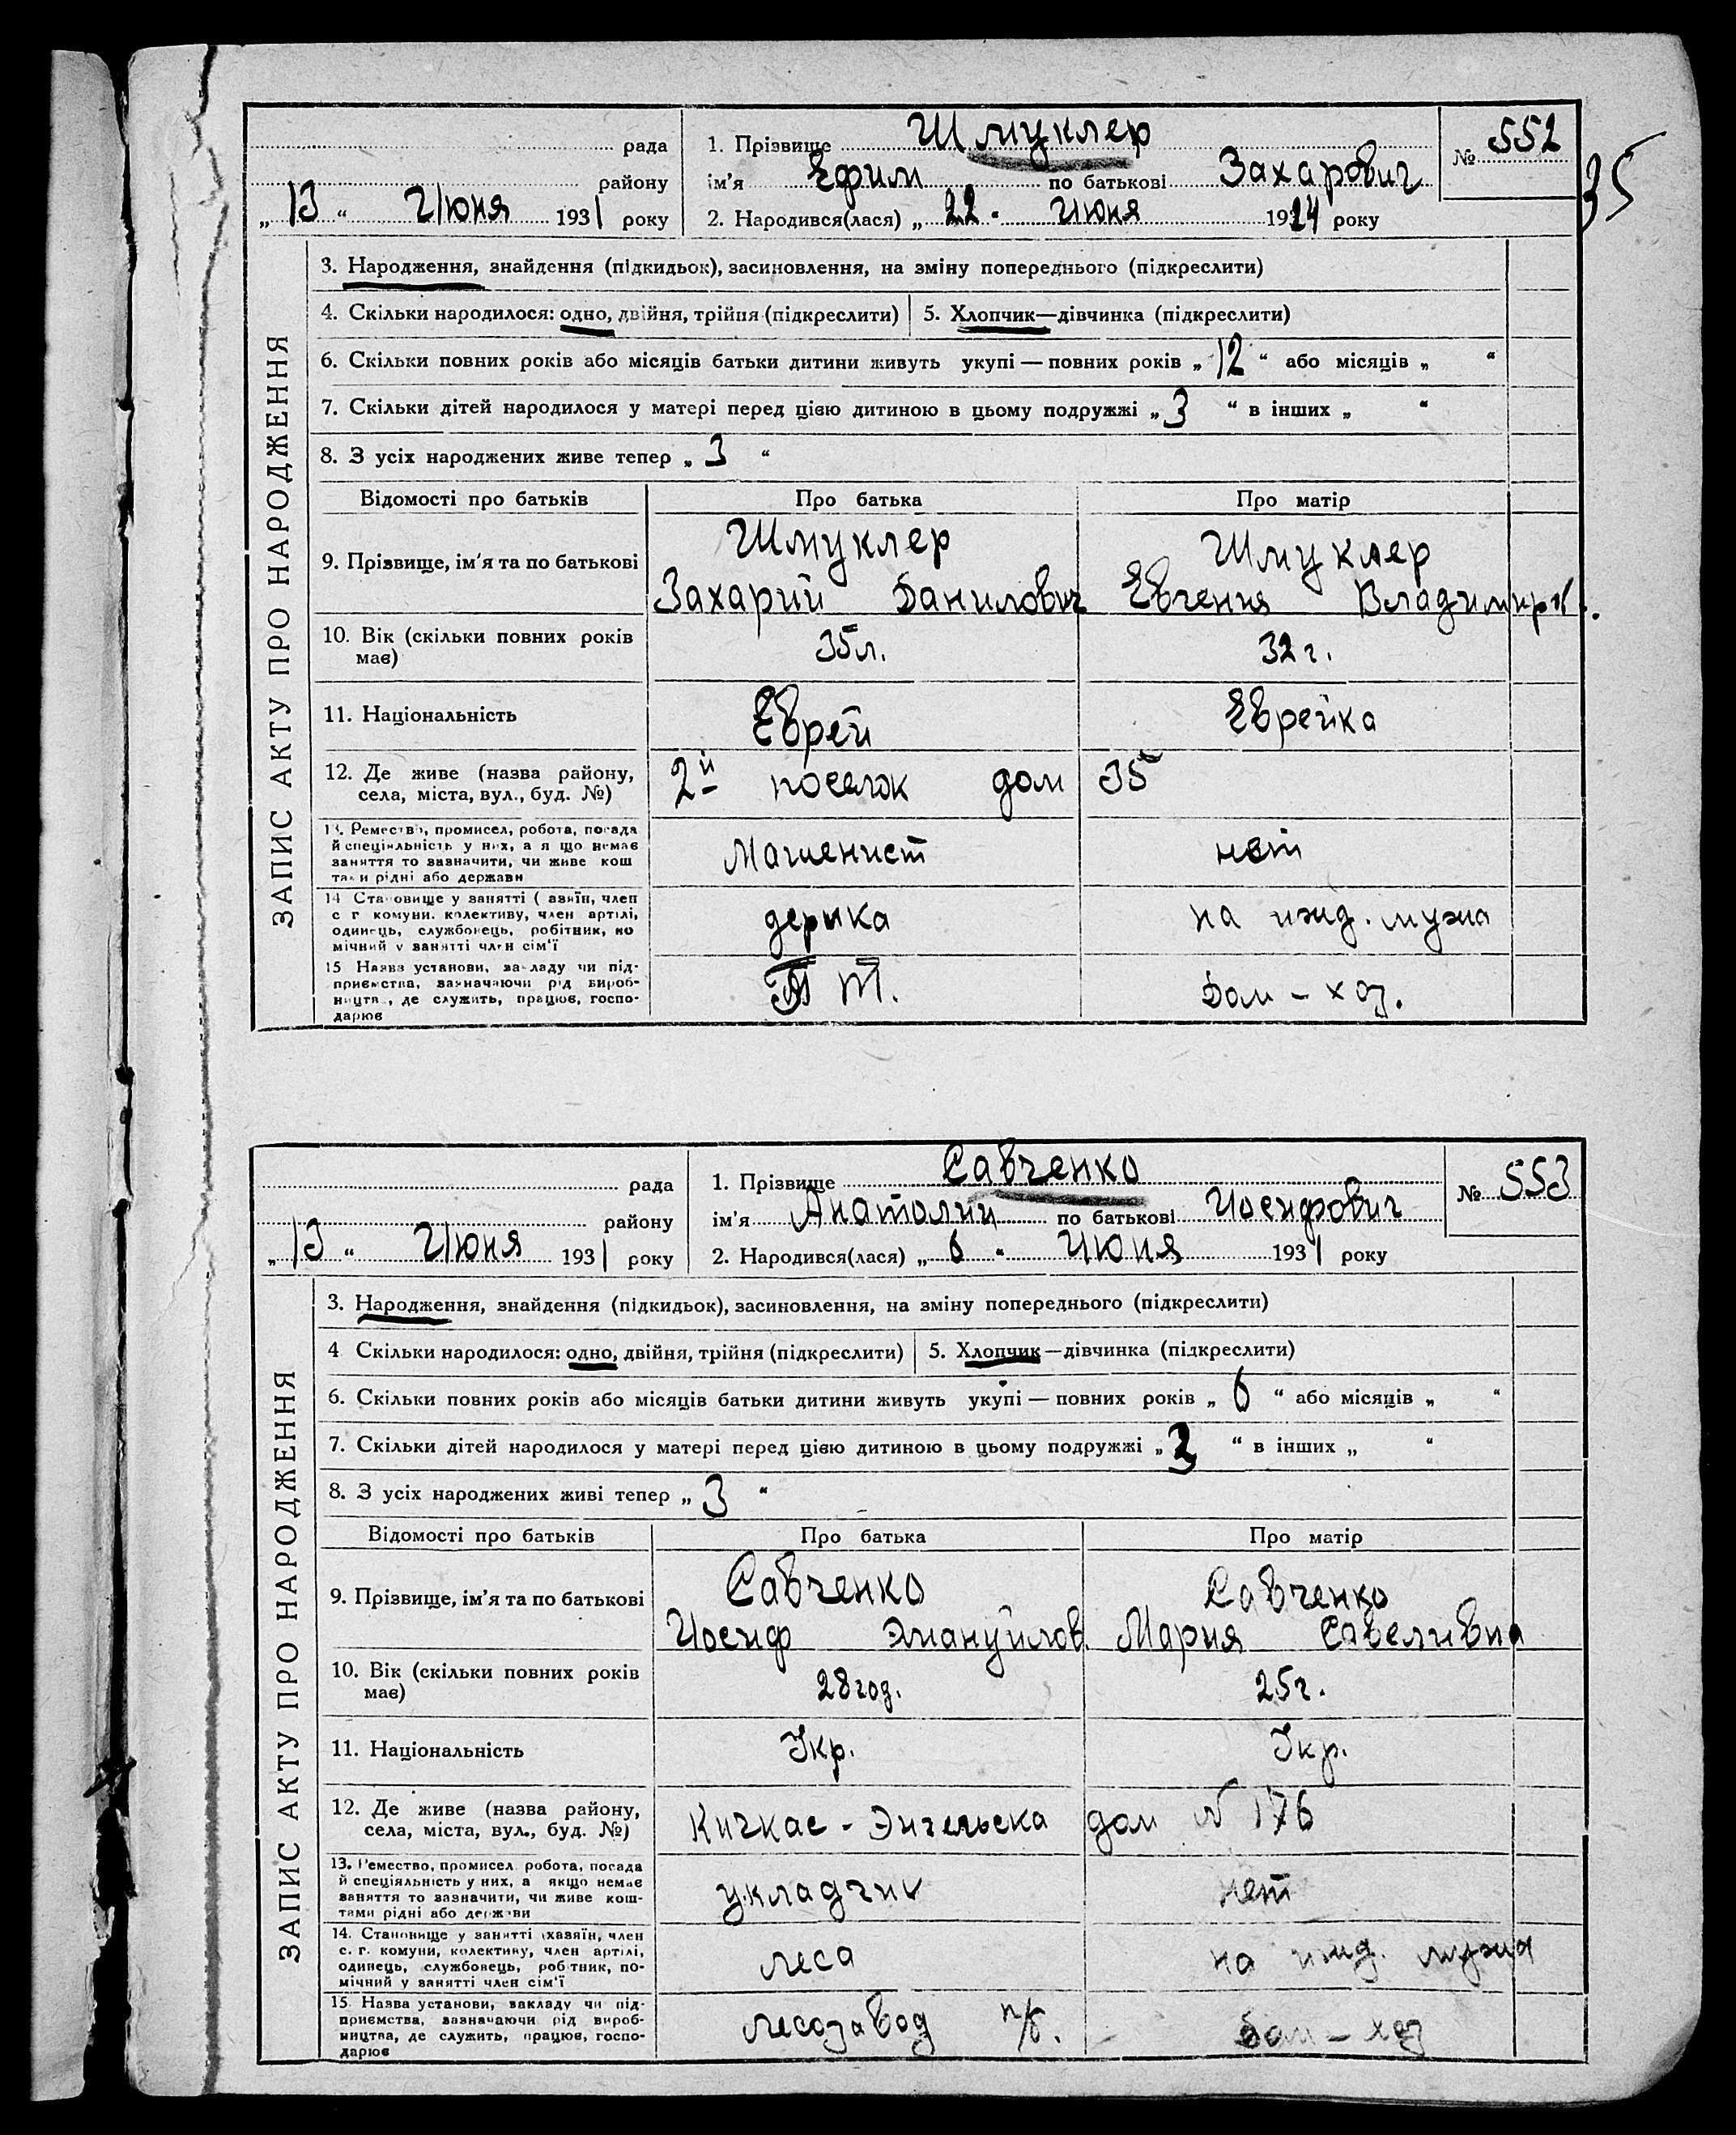 рада
району
„ 13 “ Июня 1931 року
1. Прізвище Шмуклер
ім'я Ефим по батькові Захарович
2. Народився(лася) „ 22 “ Июня 1924 року
№ 552
35
ЗАПИС АКТУ ПРО НАРОДЖЕННЯ
3. Народження, знайдення (підкидьок), засиновлення, на зміну попереднього (підкреслити)
4. Скільки народилося: одно, двійня, трійня (підкреслити) 5. Хлопчик—дівчинка (підкреслити)
6. Скільки повних років або місяців батьки дитини живуть укупі — повних років „ 12 “ або місяців „ “
7. Скільки дітей народилося у матері перед цією дитиною в цьому подружжі „ 3 “ в інших „ “
8. З усіх народжених живе тепер „ 3 “
Відомості про батьків Про батька Про матір
9. Прізвище, ім'я та по батькові
Шмуклер
Захарий Данилович
Шмуклер
Евгения Владимир
10. Вік (скільки повних років
має)
35 л.
32 г.
11. Національність
Еврей
Еврейка
12. Де живе (назва району,
села, міста, вул., буд. №)
2й поселок дом 35
13. Ремество, промисел, робота, посада
й спеціяльність у них, а якщо немає
заняття то зазначити, чи живе кош
тами рідні або держави
Машенист
нет
14 Становище у занятті (хазяїн, член
с г комуни, колективу, член артілі,
одинець, службовець, робітник, по
мічний у занятті член сім'ї
дерика
на ижд. мужа
15 Назва установи, закладу чи під-
приємства, зазначаючи рід вироб-
ництва, де служить, працює, госпо-
дарює
Т.
Дом – хоз.
рада
району
„ 13 “ Июня 1931 року
1. Прізвище Савченко
ім'я Анатолии по батькові Иосифович
2. Народився(лася) „ 6 “ Июня 1931 року
№ 553
ЗАПИС АКТУ ПРО НАРОДЖЕННЯ
3. Народження, знайдення (підкидьок), засиновлення, на зміну попереднього (підкреслити)
4 Скільки народилося: одно, двійня, трійня (підкреслити) 5. Хлопчик—дівчинка (підкреслити)
6. Скільки повних років або місяців батьки дитини живуть укупі — повних років „ 6 “ або місяців „ “
7. Скільки дітей народилося у матері перед цією дитиною в цьому подружжі „ 3 “ в інших „ “
8. З усіх народжених живі тепер „ 3 “
Відомості про батьків Про батька Про матір
9. Прізвище, ім'я та по батькові
Савченко
Иосиф Эмануйлов
Савченко
Мария Савеливна
10. Вік (скільки повних років
має)
28 год.
25 г.
11. Національність
Укр.
Укр.
12. Де живе (назва району,
села, міста, вул., буд. №)
Кичкас - Энгельска дом № 176
13. Ремество, промисел робота, посада
й спеціяльність у них, а якщо немає
заняття то зазначити, чи живе кош-
тами рідні або держави
укладчик
нет
14. Становище у занятті (хазяїн, член
с. г. комуни, колективу, член артілі,
одинець, службовець, робітник, по-
мічний у занятті член сім'ї
леса
на ижд. мужа
15. Назва установи, закладу чи під-
приємства, зазначаючи рід вироб-
ництва, де служить, працює, госпо-
дарює
лесозавод п/б.
Дом – хоз